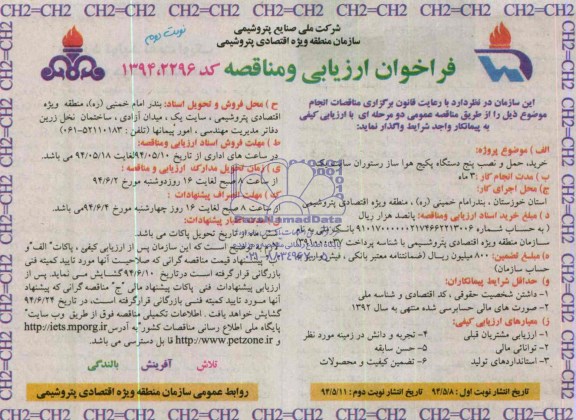 CH2=CH2 CH2=CH2 CH2=CH2 CH2=CH2 CH2=CH2 CH2=CH2
نوبت دوم
شرکت ملی صنایع پتروشیمی
سازمان منطقه ویژه اقتصادی پتروشیمی
فراخوان ارزیابی ومناقصه کد ۱۳۹۴،۲۲۹۶
این سازمان در نظردارد با رعایت قانون برگزاری مناقصات انجام
موضوع ذیل را از طریق مناقصه عمومی دو مرحله ای با ارزیابی کیفی
به پیمانکار واجد شرایط واگذار نماید:
الف ) موضوع پروژه:
خرید، حمل و نصب پنج دستگاه پکیج هوا ساز رستوران سایت یک
ب ) مدت انجام کار: ۳ ماه
ج) محل اجرای کار:
استان خوزستان ، بندرامام خمینی (ره) ، منطقه ویژه اقتصادی پتروشیمی
د ) مبلغ خرید اسناد ارزیابی ومناقصه: پانصد هزار ریال
( به حساب شماره
سازمان منطقه ویژه اقتصادی پتروشیمی با شناسه پرداخت
ه) مبلغ تضمین: ۸۰۰ میلیون ریـال (ضمانتنامه معتبر بانکی ، فیش واریز به
حساب سازمان)
و) حداقل شرایط پیمانکاران:
۱- داشتن شخصیت حقوقی ، کد اقتصادی و شناسه ملی
۲- صورت های مالی حسابرسی شده منتهی به سال ۱۳۹۲
ز) معیارهای ارزیابی کیفی:
۱- ارزیابی مشتریان قبلی
۲- توانائی مالی
۳- استانداردهای تولید
۴- تجربه و دانش در زمینه مورد نظر
۵- حسن سابقه
۶- تضمین کیفیت و محصولات
تاریخ انتشار نوبت اول : ۹۴/۵/۸ تاریخ انتشار نوبت دوم : ۹۴/۵/۱۱
ح ) محل فروش و تحویل اسناد: بندر امام خمینی (ره)، منطقه ویژه
اقتصادی پتروشیمی ، سایت یک ، میدان آزادی ، ساختمان نخل زرین
دفاتر مدیریت مهندسی ، امور پیمانها (تلفن : ۵۲۱۱۰۱۸۳-۰۶۱)
ط ) مهلت فروش اسناد ارزیابی ومناقصه:
در ساعت های اداری از تاریخ ۹۴/۰۵/۱۰ لغایت ۹۴/۰۵/۱۸ می باشد.
ی ) زمان تحویل مدارک ارزیابی و مناقصه :
از ساعت ۸ صبح لغایت ۱۶ روز دوشنبه مورخ ۹۴/۶/۲
ک) مهلت
پیشنهادات :
از ساعت ۸ صبح لغایت ۱۶ روز چهارشنبه مورخ ۹۴/۶/۴ می باشد.
اعتبار پیشنهادات :
شش ماه از تاریخ تحویل پاکات می باشد.
است که این سازمان پس از ارزیابی کیفی ، پاکات "الف"و
قیمت مناقصه گرانی که صلاحیت آنها مورد تایید کمیته فنی
بازرگانی قرار گرفته است درتاریخ ۹۴/۶/۱۰ گشایش می نماید. پس از
ارزیابی پیشنهادات فنی پاکات پیشنهاد مالی "ج" مناقصه گرانی که پیشنهاد
آنها مورد تایید کمیته فنی بازرگانی قرارگرفته است، در تاریخ ۹۴/۶/۲۴
گشایش خواهد یافت . اطلاعات تکمیلی مناقصه فوق از طریق وب سایت"
پایگاه ملی اطلاع رسانی مناقصات کشور"به آدرس http://iets.mporg.ir
و http://www.petzone.ir قا بل دسترسی می باشد.
تلاش آفرینش بالندگی
روابط عمومی سازمان منطقه ویژه اقتصادی پتروشیمی
CH2=CH2 CH2=CH2 CH2=CH2 CH2=CH2 CH2=CH2 CH2=CH2